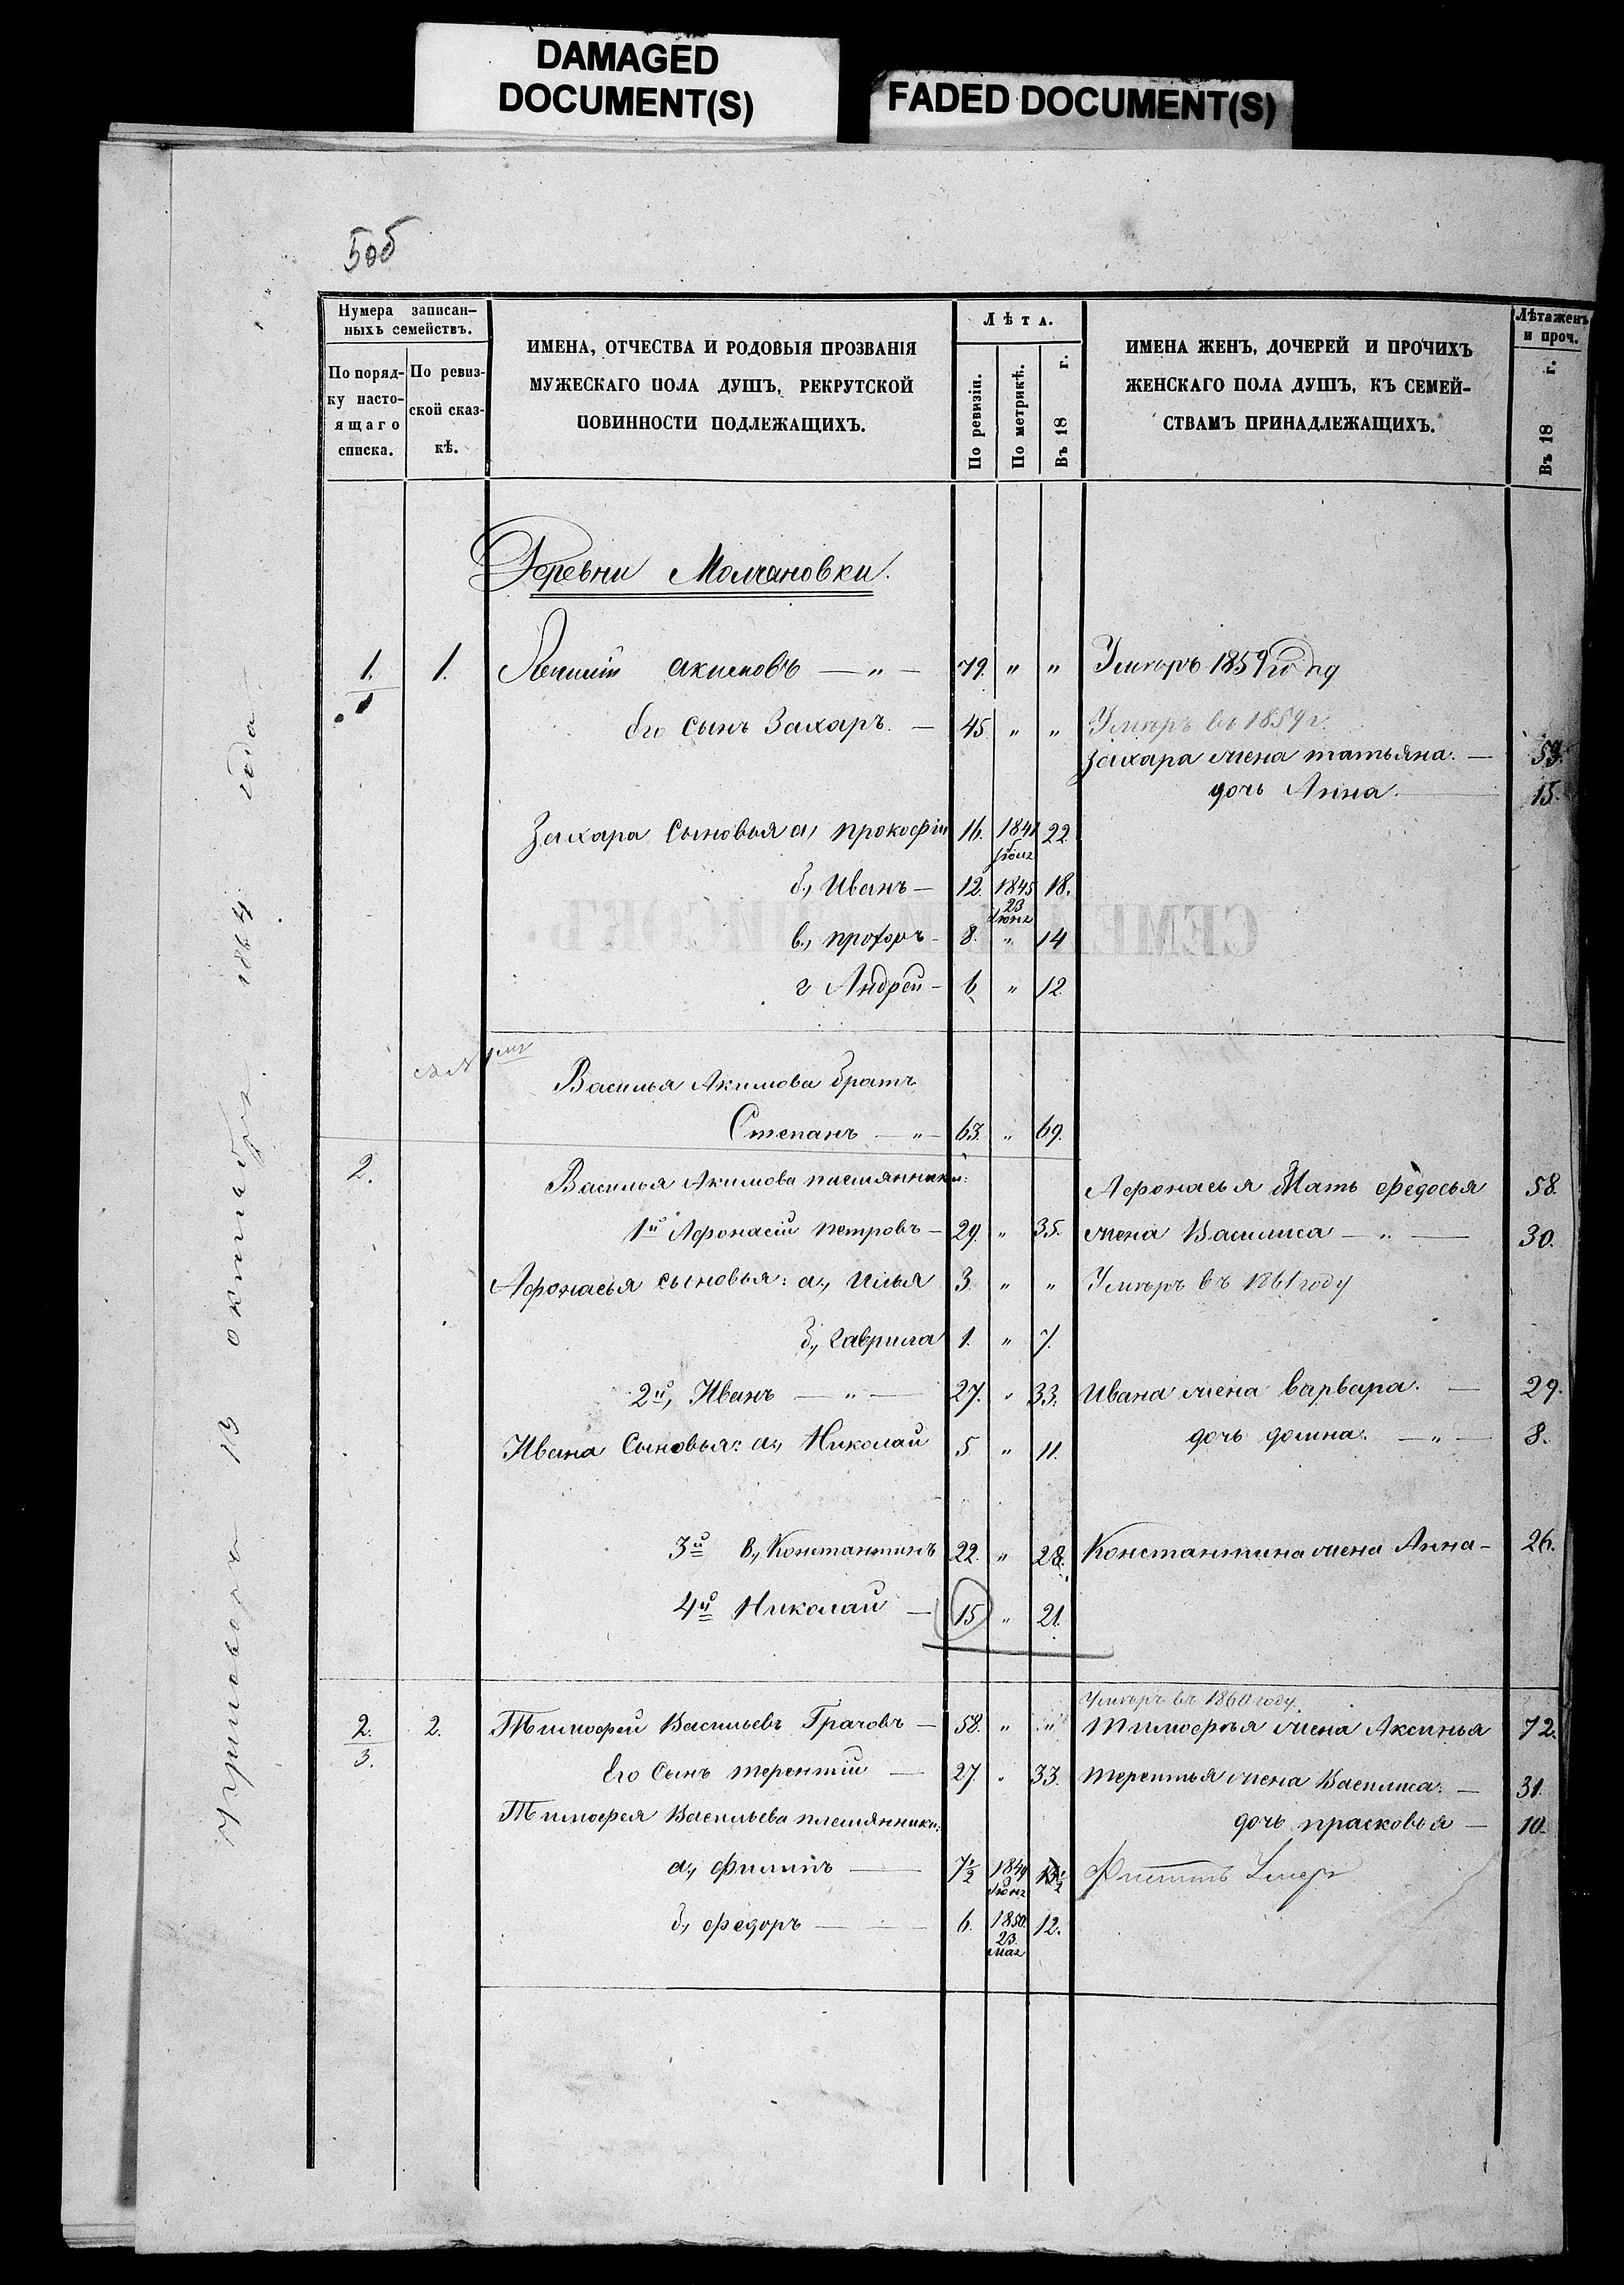 DAMAGED
DOCUMENT(S)
FADED DOCUMENT(S)
506
Нумера записан-
ныхъ семействъ.
По поряд-
ку насто-
ящаго
списка.
По ревиз-
ской сказ-
кѣ.
ИМЕНА, ОТЧЕСТВА И РОДОВЫЯ ПРОЗВАНІЯ
МУЖЕСКАГО ПОЛА ДУШЪ, РЕКРУТСКОЙ
ПОВИННОСТИ ПОДЛЕЖАЩИХЪ.
Лѣта.
По ревизіи.
По метрикѣ.
Въ 18 г.
ИМЕНА ЖЕНЪ, ДОЧЕРЕЙ И ПРОЧИХЪ
ЖЕНСКАГО ПОЛА ДУШЪ, КЪ СЕМЕЙ-
СТВАМЪ ПРИНАДЛЕЖАЩИХЪ.
Лѣта женъ
и проч.
Въ 18 г.
Деревни Молчановки.
1. 1. акимовъ — " — 79. " " Умеръ 1859 году
1
Его сынъ Захаръ. — 45. " " Умеръ въ 1859 г.
Захара жена татьяна. — 53.
дочь Анна. — 15.
Захара сыновья а, прокофій 16. 1841 22.
б., Иванъ — 12. 1845 18.
23
Іюня
в., прохоръ — 8. " 14
г Андрей — 6. " 12
Василья Акимова братъ
Степанъ — " — 63. " 69.
2. Василья Акимова племянники:
Афонасья Мать Федосья 58.
1й Афонасій петровъ — 29. " 35. жена Василиса — " — 30.
Афонасья сыновья: а., Илья 3 " " Умеръ въ 1861 году
б., гаврила 1. " 7.
2й, Иванъ — " — 27. " 33. Ивана жена варвара. — 29.
Ивана Сыновья: а., Николай 5 " 11. дочь домна. — " — 8.
3й в., Константинъ 22. " 28. Константина жена Анна — 26.
4й Николай — 15 " 21.
Умеръ въ 1860 году
2. 2. Тимофей Васильевъ Грачовъ — 58. " " Тимофея жена Аксинья 72.
3.
Его Сынъ терентій — 27. " 33. терентья жена Василиса. — 31.
Тимофея Васильева племянники: дочь прасковья — 10.
а., Филипъ — 7½ Филиппъ Умеръ
б., Федоръ — 6. 1850. 12.
23
мая
13 октября 1864 года